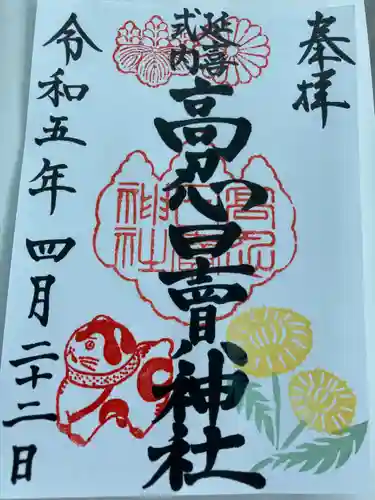 奉拝
延喜
式内
高忍日賣神社
令和五年四月二十二日